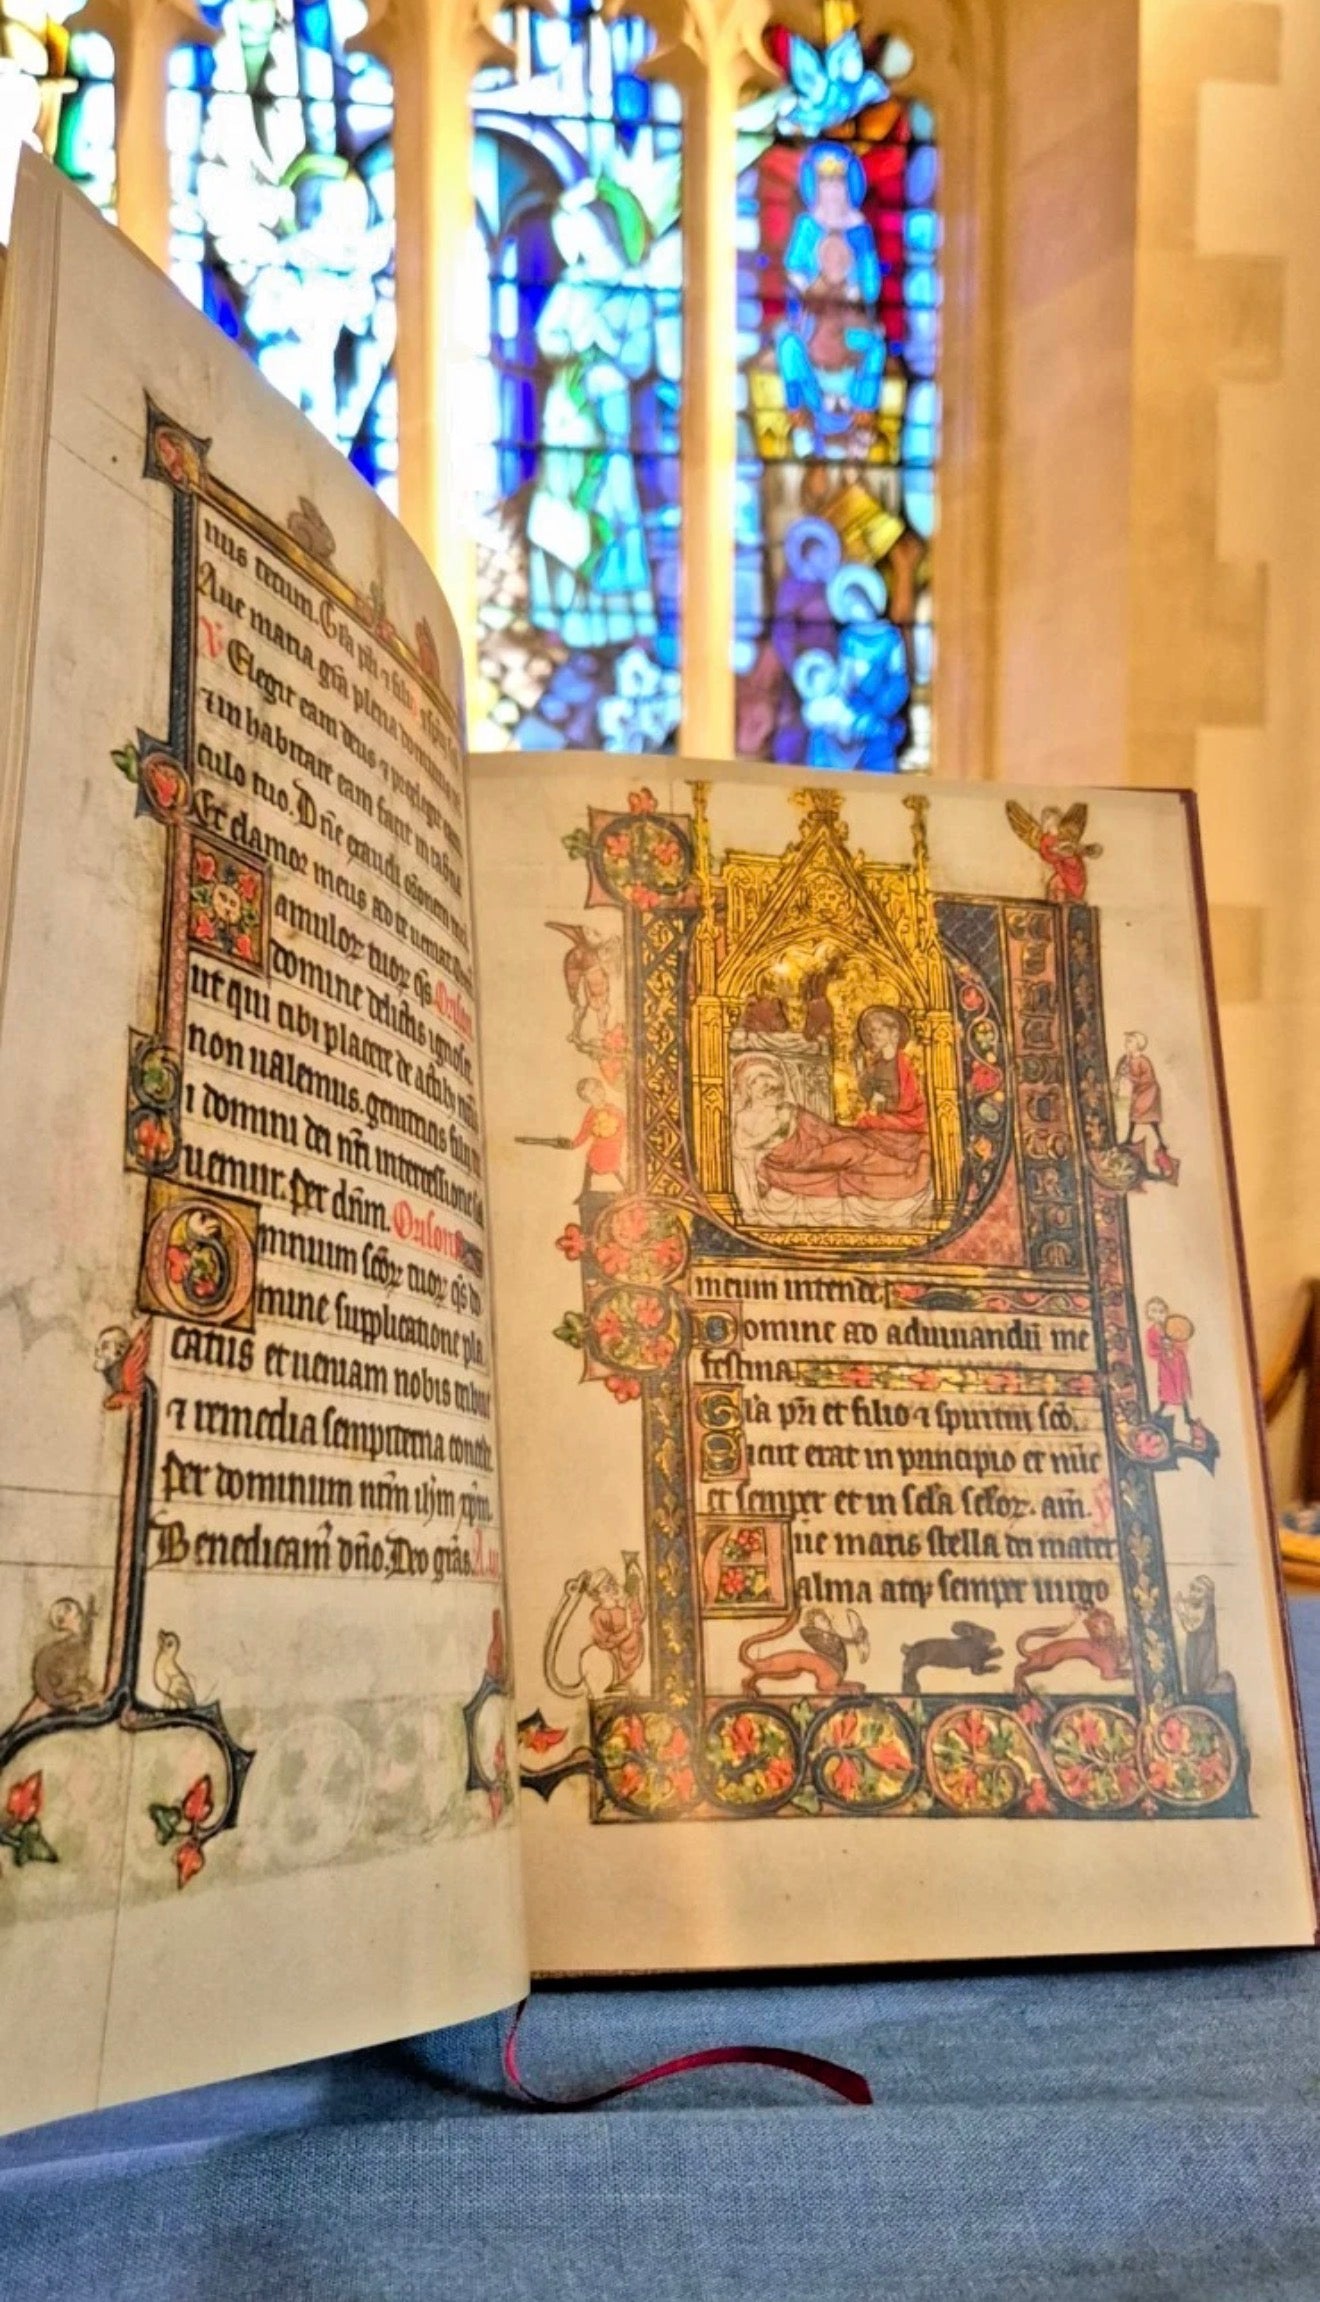 nus tecum. Gr̄a pr̄i ⁊ filio
Aue maria gr̄a plena dominus
V Elegit eam deus ⁊ preelegit eam
⁊ in habitare eam facit in taƀna
culo tuo. Dn̄e exaudi or̄onem meā
Et clamor meus ad te ueniat
Famuloꝝ tuoꝝ qs̄ Orison
domine delictis ignosce
ut qui tibi placere de actib; nr̄is
non ualemus. genitricis filii tu
i domini dei nr̄i intercessione sal
uemur. Per dn̄m. Orison
Omnium sc̄oꝝ tuoꝝ qs̄ do
mine supplicatione pla
catus et ueniam nobis tribue
⁊ remedia sempiterna concede
Per dominum nr̄m ih̄m xp̄m.
Benedicam̄ dn̄o. Deo gr̄as.
DEUS IN ADIUTORIUM
meum intende.
Domine ad adiuuandū me
festina
Gl'a pr̄i et filio ⁊ spiritui sc̄o.
Sicut erat in principio et nūc
et semper et in sc̄la sc̄loꝝ. am̄.
Aue maris stella dei mater
alma atq; semper uirgo